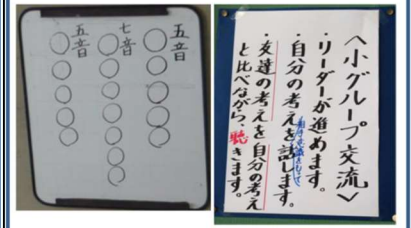 五音
七音
五音
〈小グループ交流〉
・リーダーが進めます。
・自分の考えを話します。
・友達の考えを自分の考え
と比べながら、聴きます。